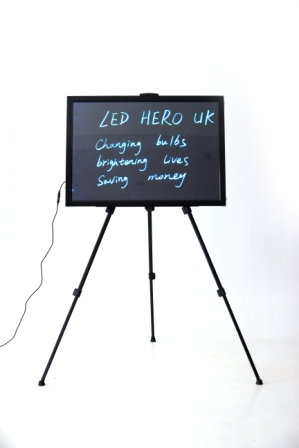 LED HERO UK
Changing bulbs
brightening lives
Saving money